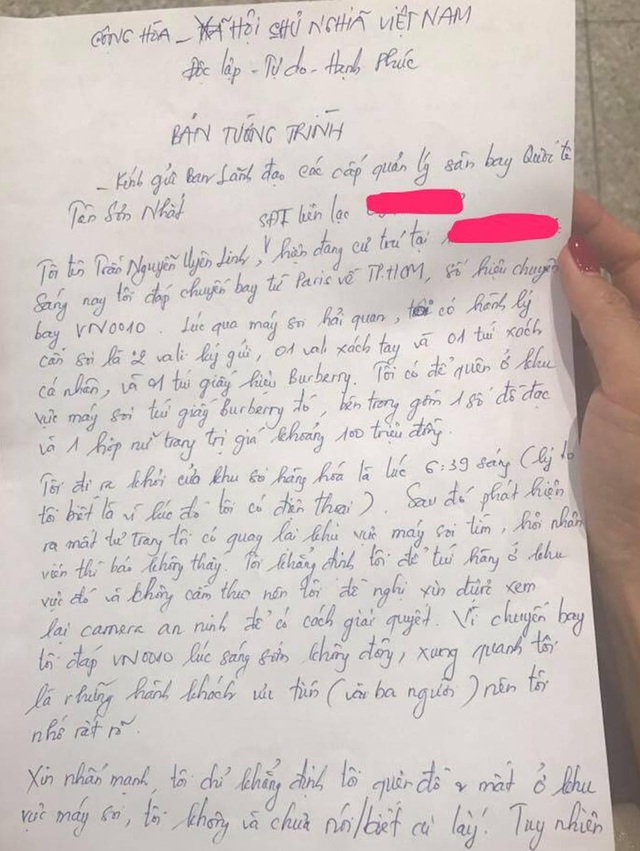 CỘNG HÒA - XÃ HỘI CHỦ NGHĨA VIỆT NAM
Độc lập - Tự do - Hạnh Phúc
BẢN TƯỜNG TRÌNH
- Kính gửi Ban Lãnh đạo các cấp quản lý sân bay Quốc tế
Tân Sơn Nhất
SĐT liên lạc
Tôi tên Trần Nguyễn Uyên Linh, hiện đang cư trú tại
Sáng nay tôi đáp chuyến bay từ Paris về TP.HCM, số hiệu chuyến
bay VN0010. Lúc qua máy soi hải quan, tôi có hành lý
cần soi là 2 vali ký gửi, 01 vali xách tay và 01 túi xách
cá nhân, và 01 túi giấy hiệu Burberry. Tôi có để quên ở khu
vực máy soi túi giấy Burberry đó, bên trong gồm 1 số đồ đạc
và 1 hộp nữ trang trị giá khoảng 100 triệu đồng.
Tôi đi ra khỏi cửa khu soi hàng hóa là lúc 6:39 sáng (lý do
tôi biết là vì lúc đó tôi có điện thoại). Sau đó phát hiện
ra mất tư trang tôi có quay lại khu vực máy soi tìm, hỏi nhân
viên thì báo không thấy. Tôi khẳng định tôi để túi hàng ở khu
vực đó và không cầm theo nên tôi đề nghị xin được xem
lại camera an ninh để có cách giải quyết. Vì chuyến bay
tôi đáp VN0010 lúc sáng sớm không đông, xung quanh tôi
là những hành khách ưu tiên (vài ba người) nên tôi
nhớ rất rõ.
Xin nhấn mạnh, tôi chỉ khẳng định tôi quên đồ & mất ở khu
vực máy soi, tôi không và chưa nói/biết ai lấy! Tuy nhiên